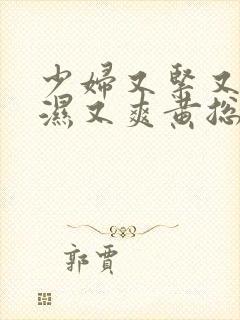 少婦又緊又
濕又爽黃總
郭賈